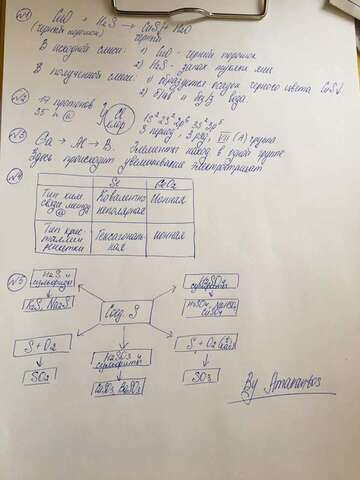 №1 CuO + H₂S → CuS + H₂O
(черный порошок) черный
В исходной смеси: 1) CuO - черный порошок
2) H₂S - запах тухлых яиц
В полученной смеси: 1) образуется осадок черного цвета CuS↓
2) H₂O вода
№2 17 протонов
35 n Cl 1s² 2s² 2p⁶ 3s² 3p⁵
хлор 3 период, 3 ряд, VII (A) группа
№3 Ga → Al → B. Элементы наход в одной группе
Здесь происходит увеличивание электроотриц
№4
Тип хим. связи между Ковалентно неполярная Ионная
Тип кристаллич. решетки Гексагональная ионная
№5 H₂S и сульфиды
H₂SO₄ сульфаты
H₂S, Na₂S
Соед. S
H₂SO₄
CuSO₄
S + O₂
H₂SO₃ и сульфиты
S + O₂
SO₂
BaSO₃
SO₃
By Amarantos